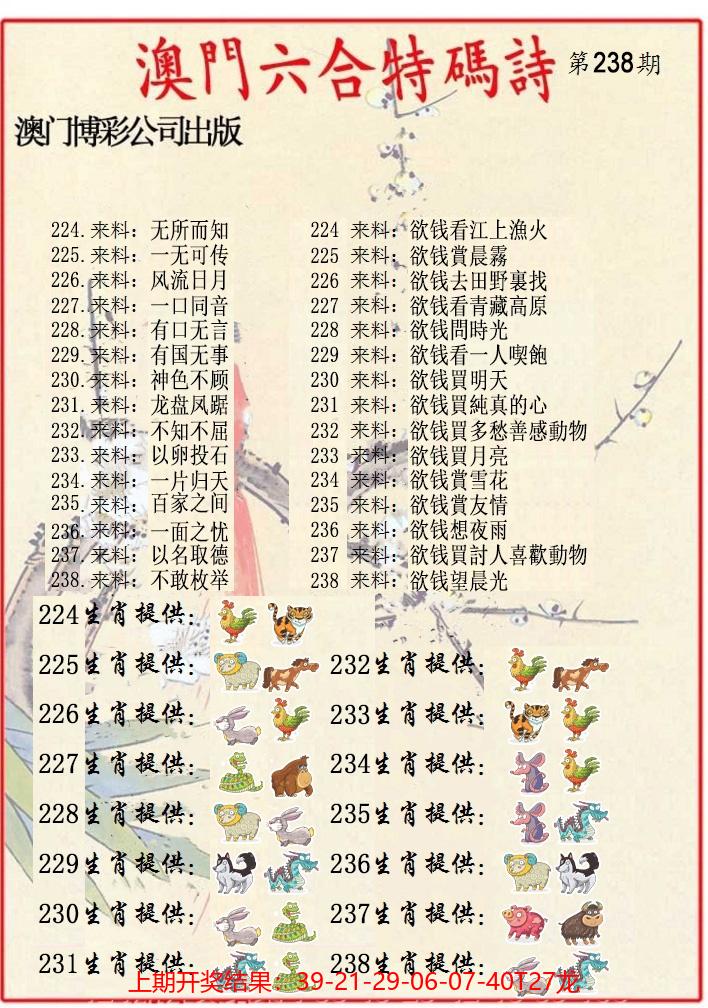 澳門六合特碼詩 第238期
澳门博彩公司出版
224.来料：无所而知 224 来料：欲钱看江上漁火
225.来料：一无可传 225 来料：欲钱賞晨霧
226.来料：风流日月 226 来料：欲钱去田野裏找
227.来料：一口同音 227 来料：欲钱看青藏高原
228.来料：有口无言 228 来料：欲钱問時光
229.来料：有国无事 229 来料：欲钱看一人喫飽
230.来料：神色不顾 230 来料：欲钱買明天
231.来料：龙盘凤踞 231 来料：欲钱買純真的心
232.来料：不知不屈 232 来料：欲钱買多愁善感動物
233.来料：以卵投石 233 来料：欲钱買月亮
234.来料：一片归天 234 来料：欲钱賞雪花
235.来料：百家之间 235 来料：欲钱賞友情
236.来料：一面之忧 236 来料：欲钱想夜雨
237.来料：以名取德 237 来料：欲钱買討人喜歡動物
238.来料：不敢枚举 238 来料：欲钱望晨光
224生肖提供：
225生肖提供： 232生肖提供：
226生肖提供： 233生肖提供：
227生肖提供： 234生肖提供：
228生肖提供： 235生肖提供：
229生肖提供： 236生肖提供：
230生肖提供： 237生肖提供：
231生肖提供： 238生肖提供：
上期开奖结果：39-21-29-06-07-40T27龙